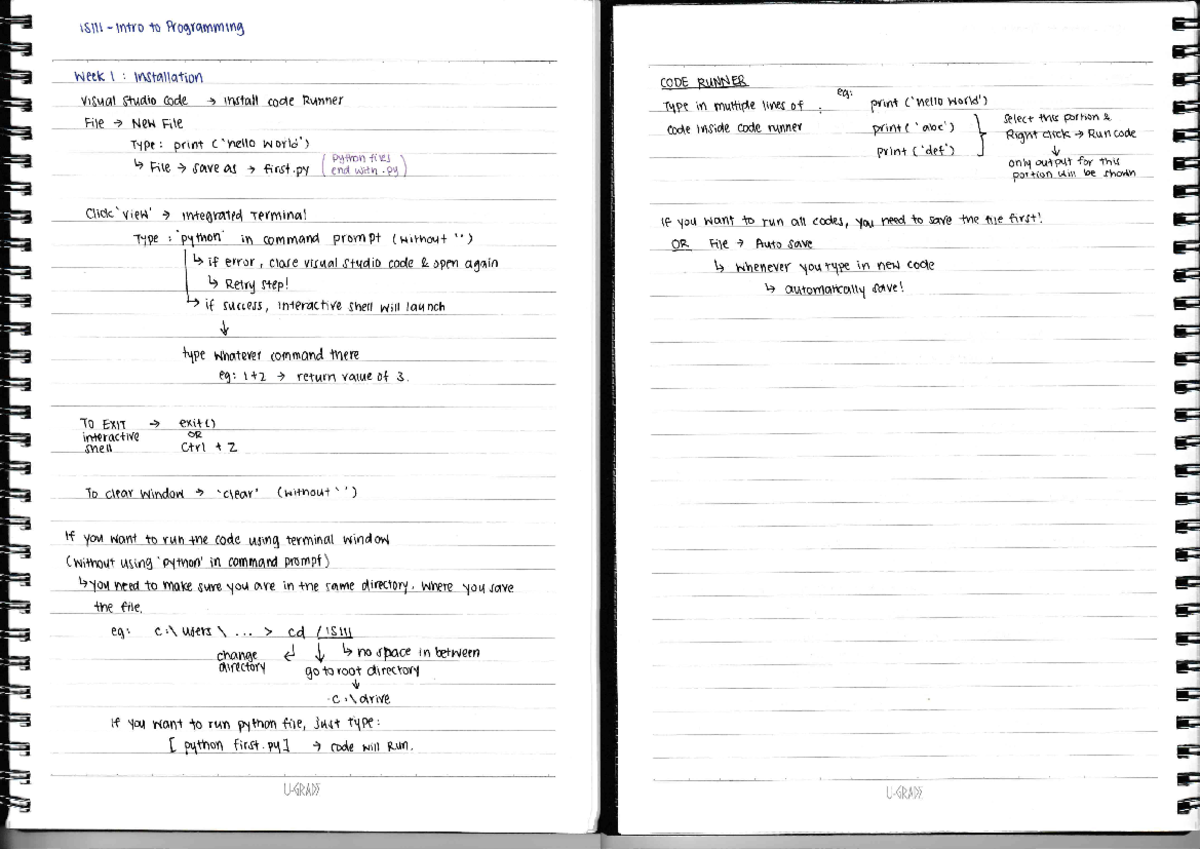 IS111 - Intro to Programming
Week 1 : Installation
Visual Studio Code → install Code Runner
File → New File
Type : print ('Hello World')
↳ File → save as → first.py (Python files
end with .py)
Click 'view' → Integrated Terminal
Type : 'python' in command prompt (without '')
↳ if error, close visual studio code & open again
↳ Retry step!
↳ if success, interactive shell will launch
↓
type whatever command there
eg: 1+2 → return value of 3.
To EXIT → exit()
interactive OR
shell Ctrl + Z
To clear window → 'clear' (without '')
If you want to run the code using terminal window
(without using 'python' in command prompt)
↳ You need to make sure you are in the same directory. Where you save
the file.
eg: c:\ users \ ... > cd /IS111
change ↳ no space in between
directory go to root directory
↓
c:\ drive
If you want to run python file, just type:
[ python first.py ] → code will Run.
U-GRADE
CODE RUNNER
Type in multiple lines of : eg: print ('Hello World')
code inside code runner print ('abc')
print ('def')
Select this portion &
Right click → Run code
↓
only output for this
portion will be shown
If you want to run all codes, you need to save the file first!
OR File → Auto save
↳ Whenever you type in new code
↳ automatically save!
U-GRADE